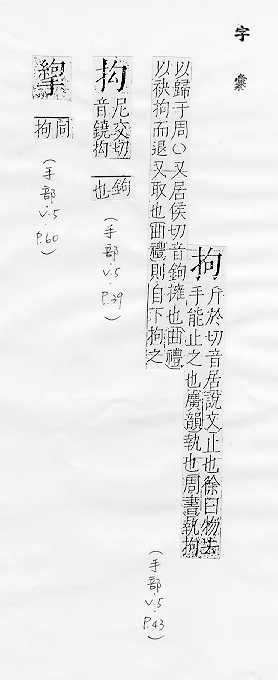 字彙
拘 斤於切音居說文止也徐曰物去
手能止之也廣韻執也周書執拘
以歸于周○又居侯切音鉤擁也曲禮
以袂拘而退又取也曲禮則自下拘之
(手部 v.5 P.43)
抅 尼交切
音鐃抅
鉤也
(手部 v.5 P.39)
同
拘
(手部 v.5 P.60)